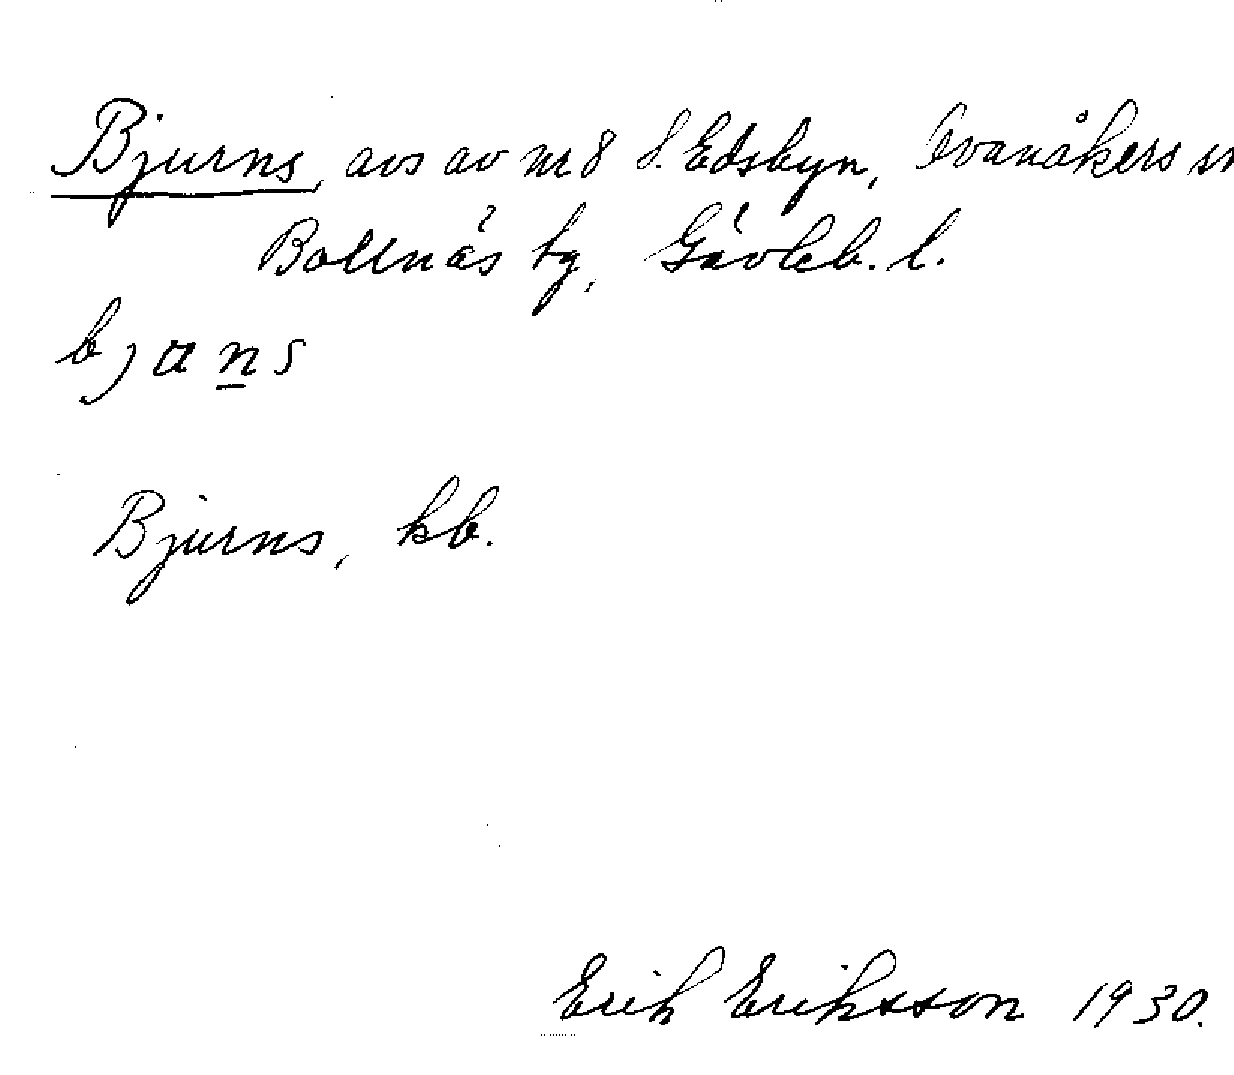 Bjurns, avs av nr 8 S. Edsbyn, Ovanåkers sn
Bollnäs tg, Gävleb. l.
bjans
Bjurns, kb.
Erik Eriksson 1930.